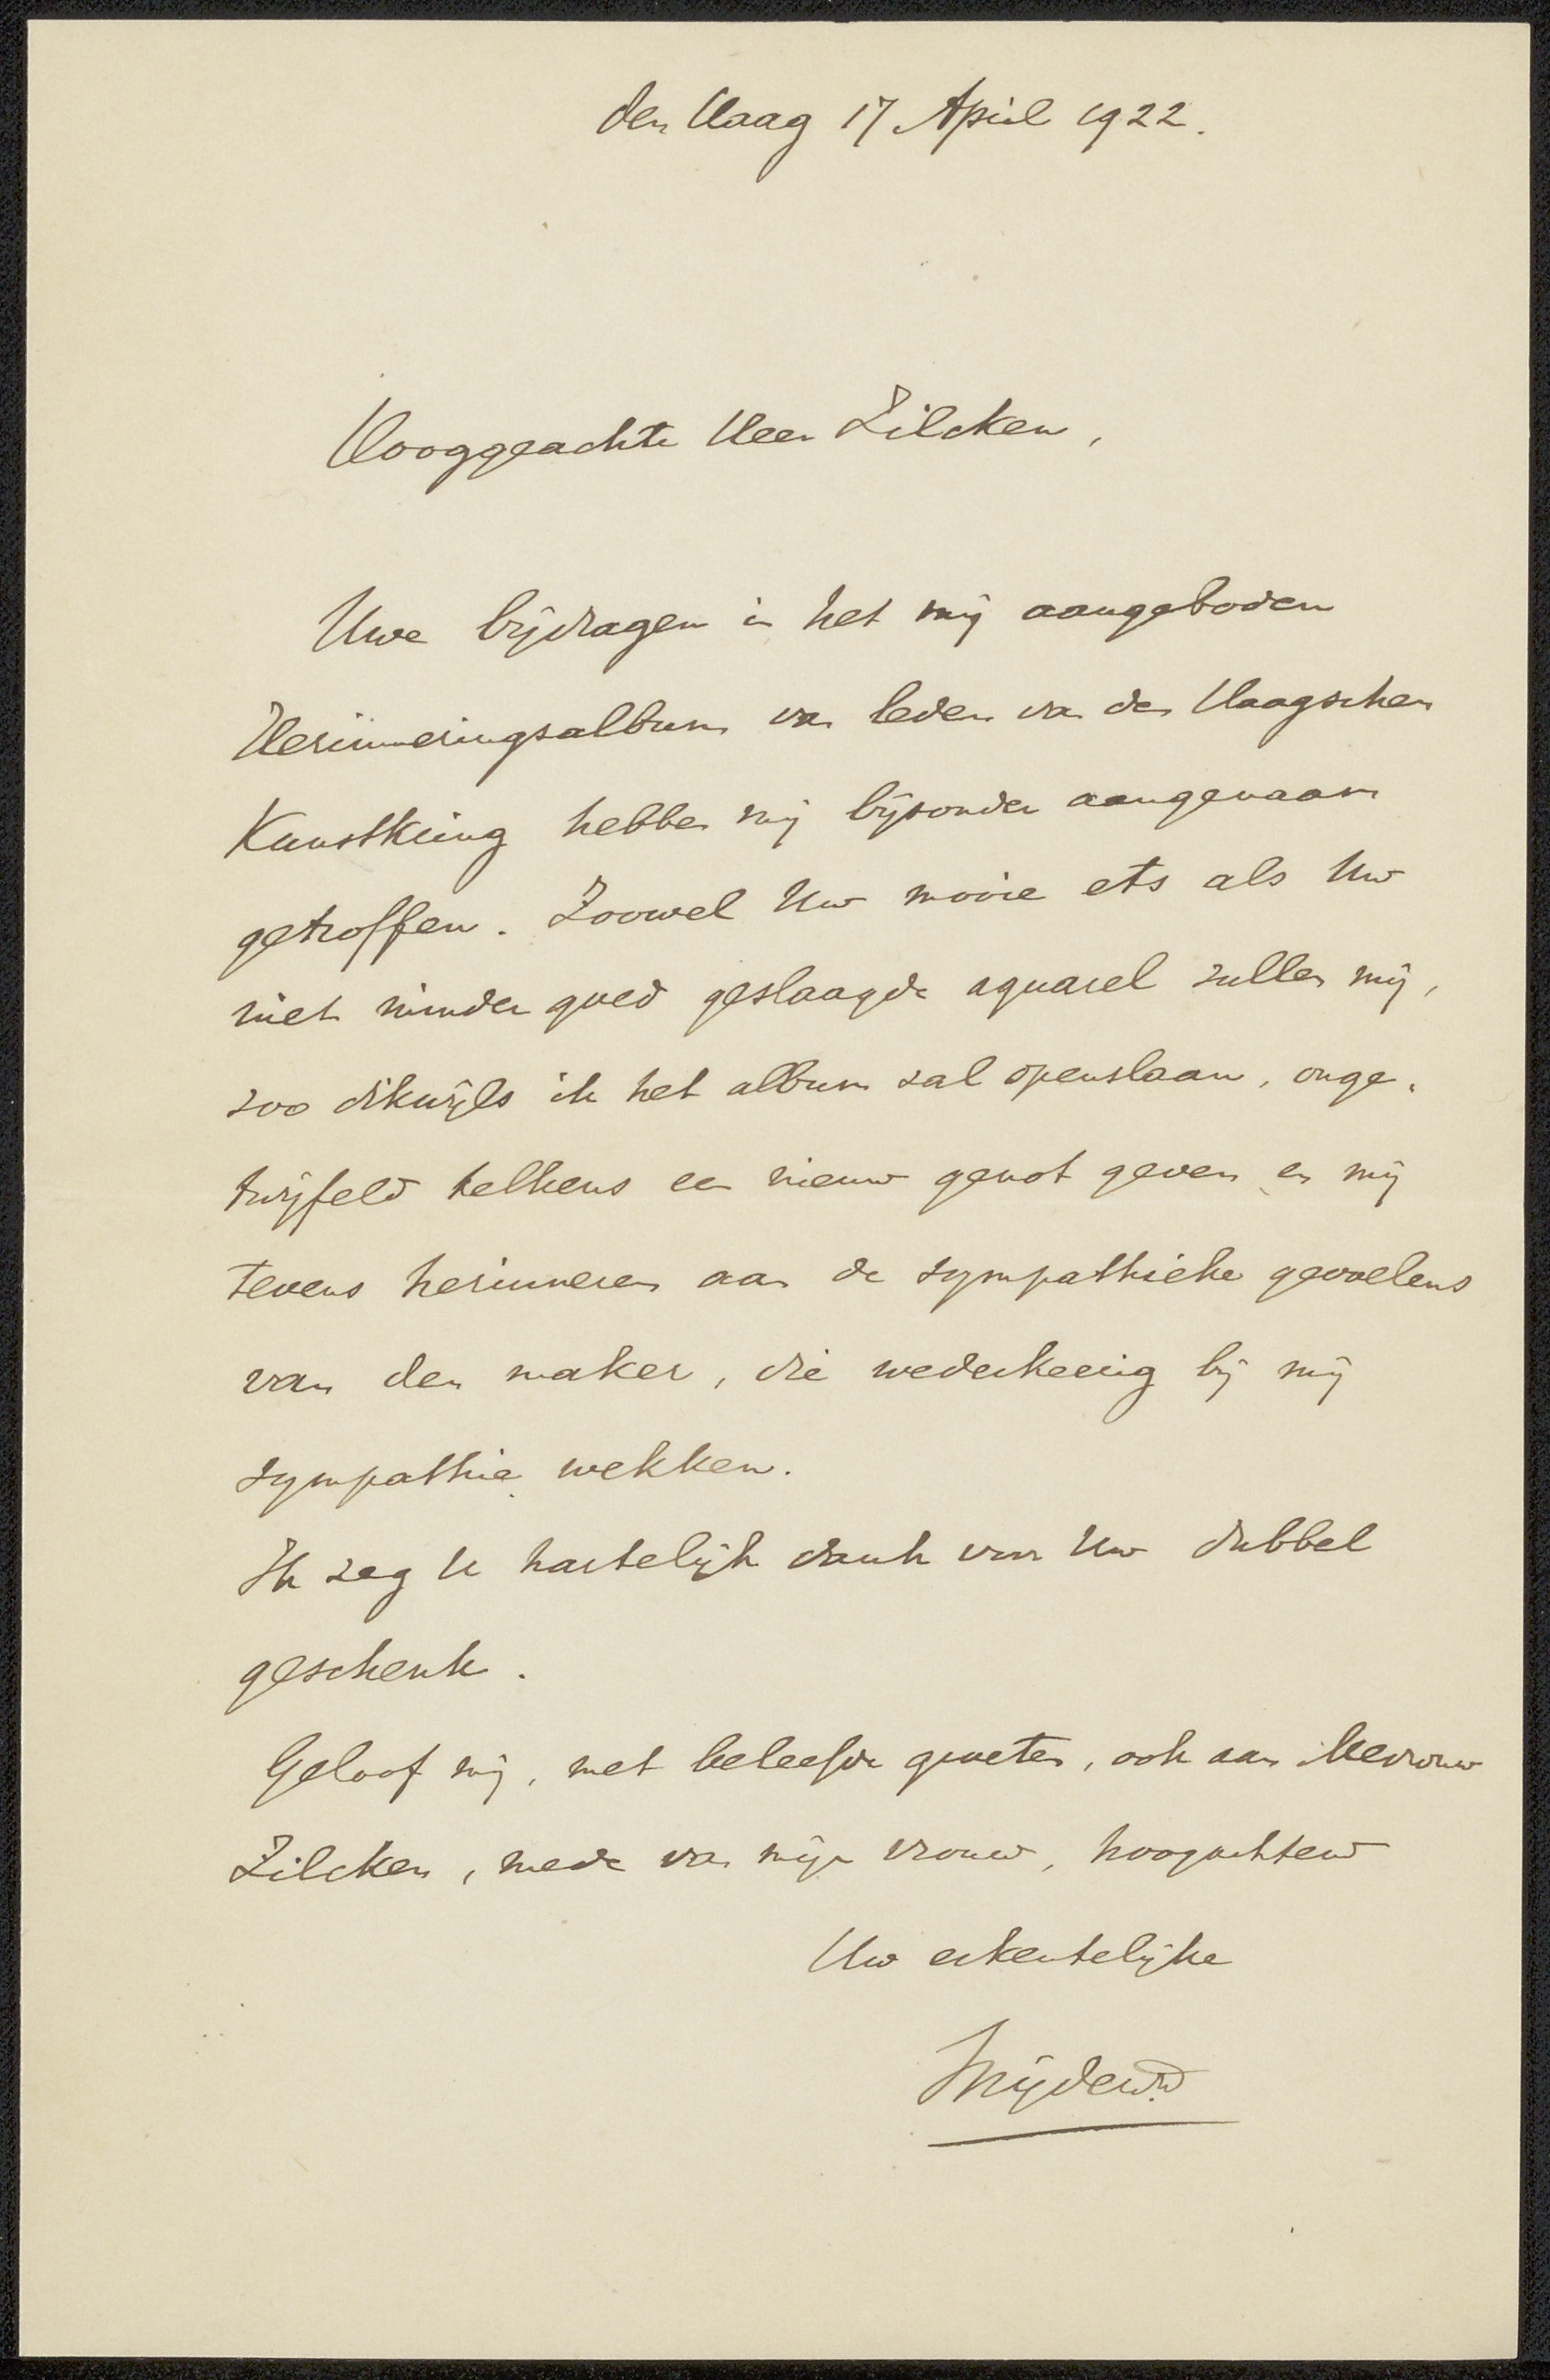 den Haag 17 April 1922.
Hooggeachte Heer Zilcken,
Uwe bijdragen in het mij aangeboden
Herinneringsalbum van leden van den Haagschen
Kunstkring hebben mij bijzonder aangenaam
getroffen. Zoowel Uw mooie ets als Uw
niet minder goed geslaagde aquarel zullen mij,
zoo dikwijls ik het album zal openslaan, onge-
twijfeld telkens een nieuw genot geven en mij
tevens herinneren aan de sympathieke gevoelens
van den maker, die wederkeerig bij mij
sympathie wekken.
Ik zeg U hartelijk dank voor Uw dubbel
geschenk.
Geloof mij, met beleefde groeten, ook aan Mevrouw
Zilcken, mede van mijn vrouw, hoogachtend
Uw erkentelijke